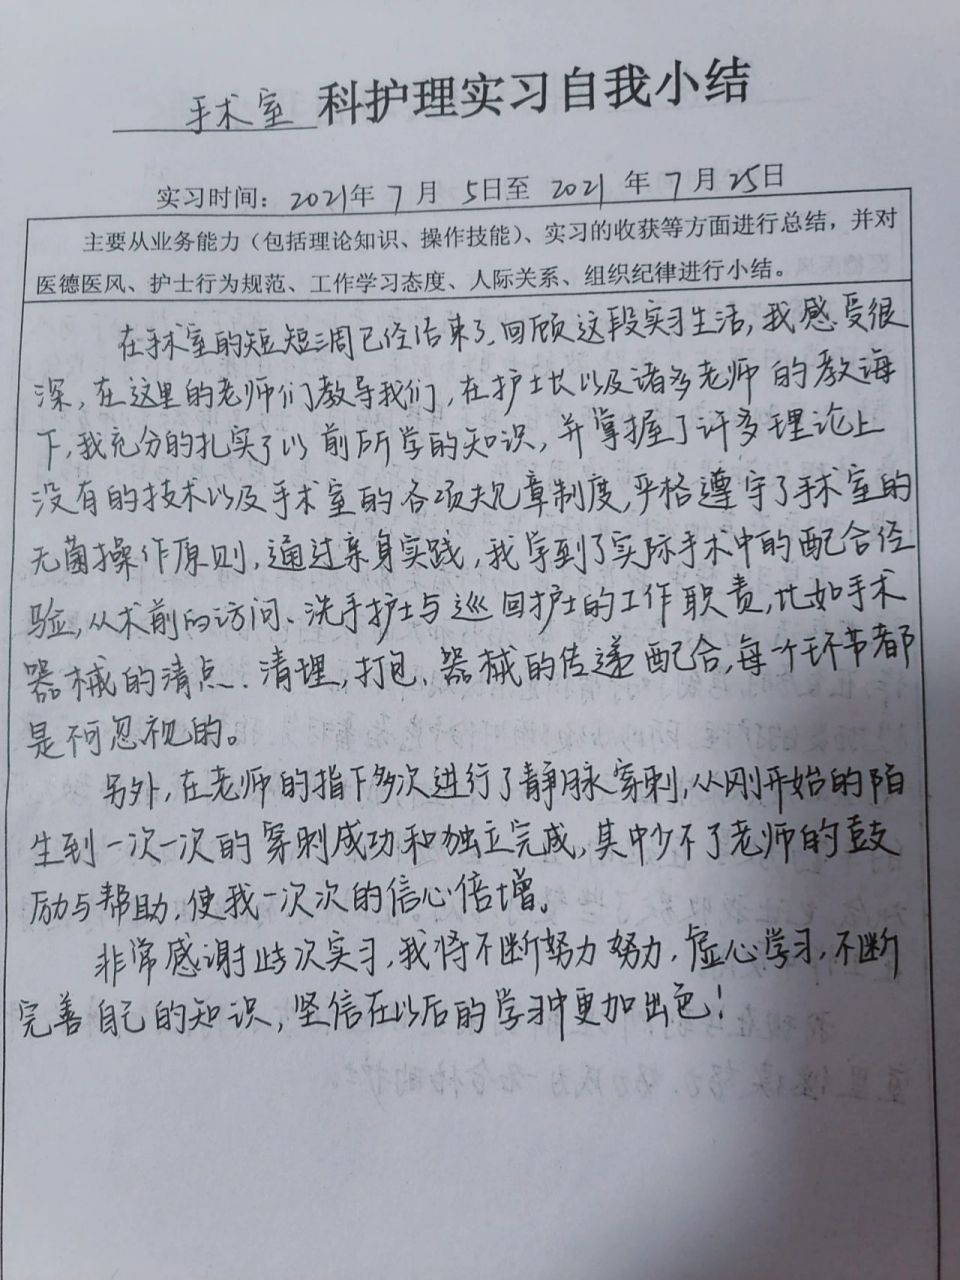 手术室 科护理实习自我小结
实习时间：2021年 7 月 5日至 2021 年 7 月 25日
主要从业务能力（包括理论知识、操作技能）、实习的收获等方面进行总结，并对
医德医风、护士行为规范、工作学习态度、人际关系、组织纪律进行小结。
在手术室的短短三周已经结束了，回顾这段实习生活，我感受很
深，在这里的老师们教导我们，在护士长以及诸多老师的教诲
下，我充分的扎实了以前所学的知识，并掌握了许多理论上
没有的技术以及手术室的各项规章制度，严格遵守了手术室的
无菌操作原则，通过亲身实践，我学到了实际手术中的配合经
验，从术前的访问、洗手护士与巡回护士的工作职责，比如手术
器械的清点、清理，打包、器械的传递配合，每一个环节都
是不可忽视的。
另外，在老师的指下多次进行了静脉穿刺，从刚开始的陌
生到一次一次的穿刺成功和独立完成，其中少不了老师的鼓
励与帮助，使我一次次的信心倍增。
非常感谢此次实习，我将不断努力努力，虚心学习，不断
完善自己的知识，坚信在以后的学习中更加出色！